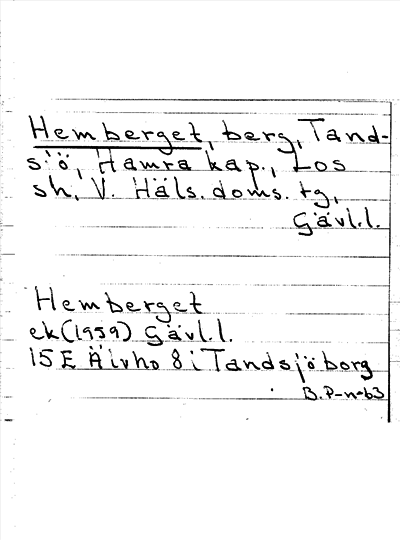 Hemberget, berg, Tand-
sjö, Hamra kap., Los
sh, V. Häls. doms. tg,
Gävl.l.
Hemberget
ek(1959) Gävl.l.
15E Älvho 8 i Tandsjöborg
B.P-n-63